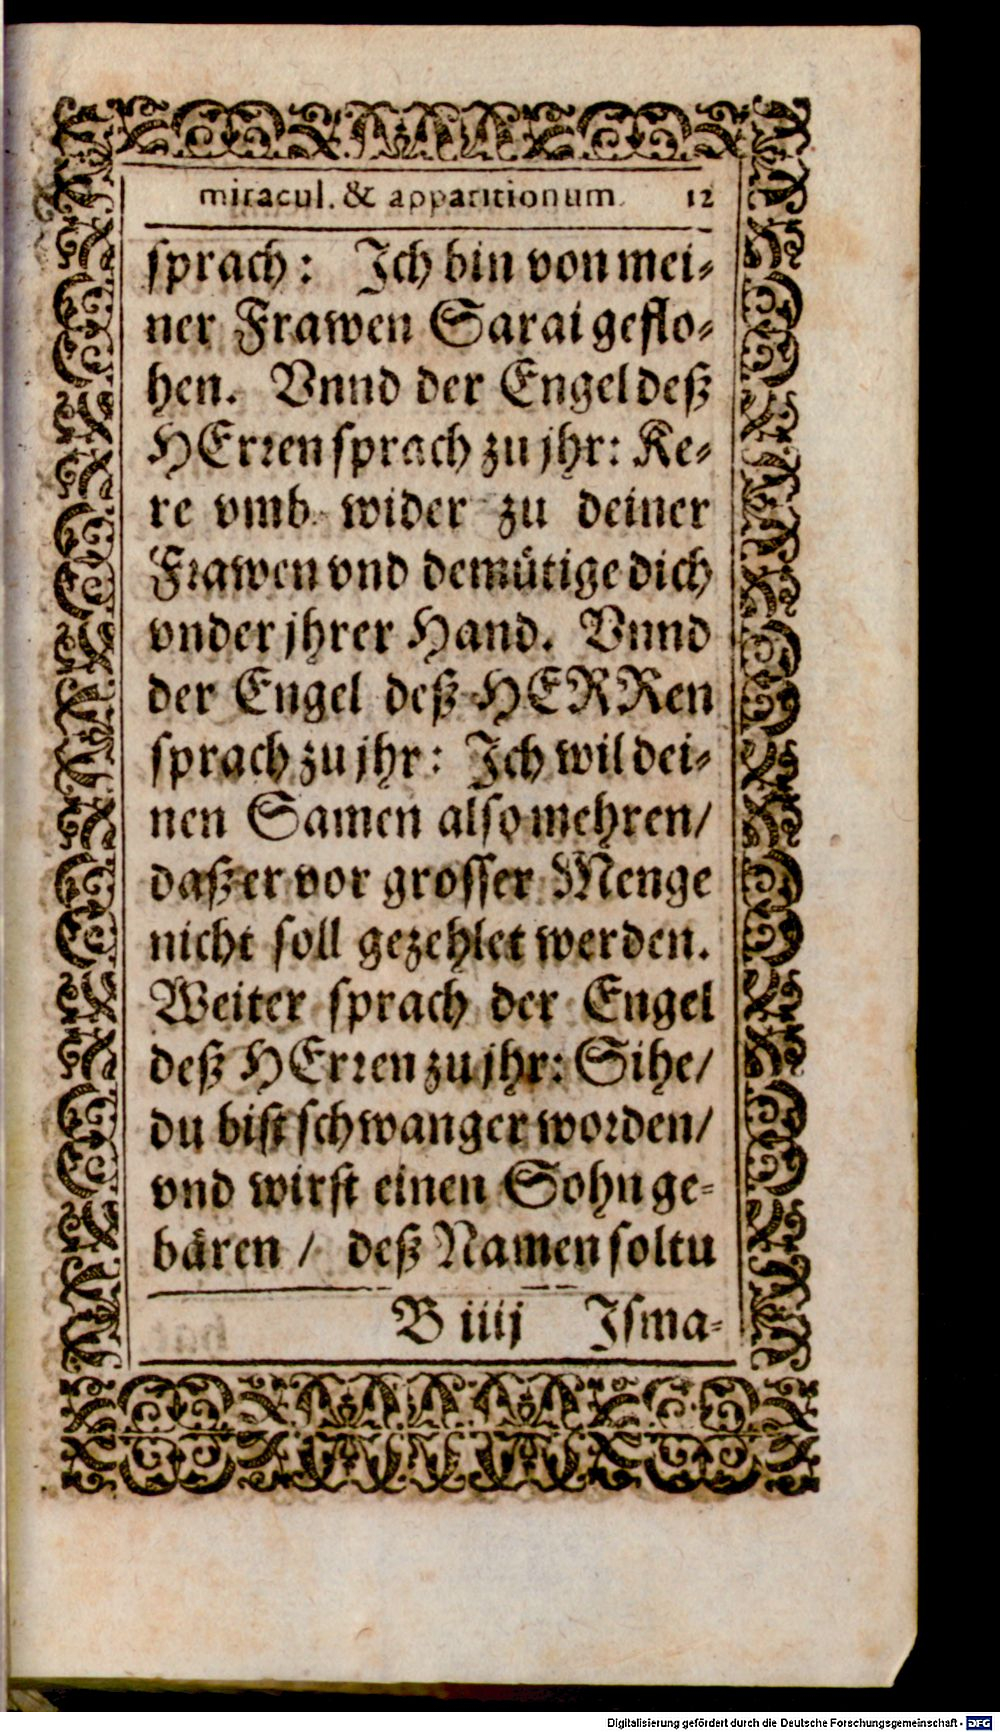 miracul. & apparitionum. 12
sprach: Ich bin von mei-
ner Frawen Sarai geflo-
hen. Vnnd der Engel deß
HErren sprach zu jhr: Ke-
re vmb wider zu deiner
Frawen vnd demütige dich
vnder jhrer Hand. Vnnd
der Engel deß HERRen
sprach zu jhr: Ich wil dei-
nen Samen also mehren/
daß er vor grosser Menge
nicht soll gezehlet werden.
Weiter sprach der Engel
deß HErren zu jhr: Sihe/
du bist schwanger worden/
vnd wirst einen Sohn ge-
bären / deß Namen soltu
B iiij Isma-
Digitalisierung gefördert durch die Deutsche Forschungsgemeinschaft - DFG